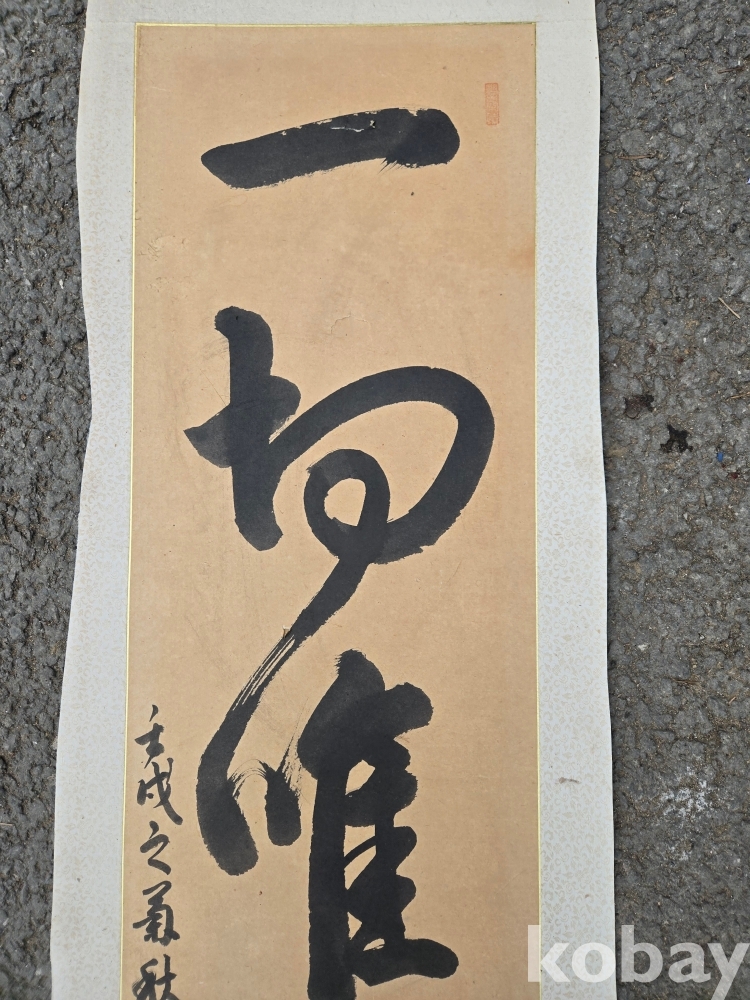 一切唯
壬戌之菊秋
kobay